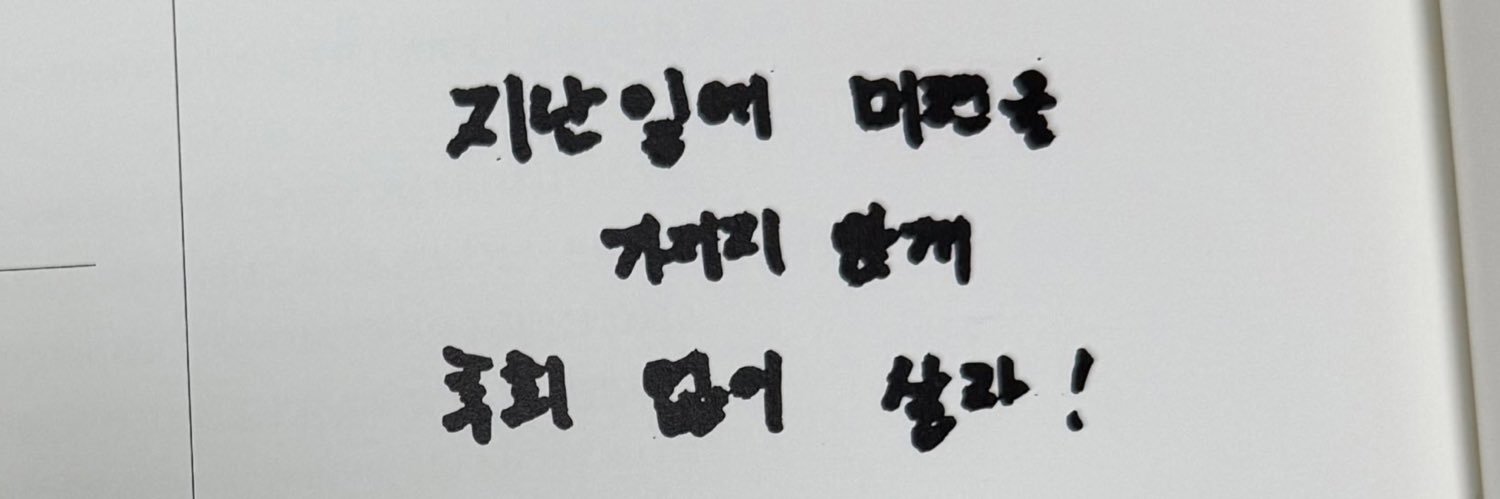 지난일에 미련을
가지지 않게
후회 없이 살라!